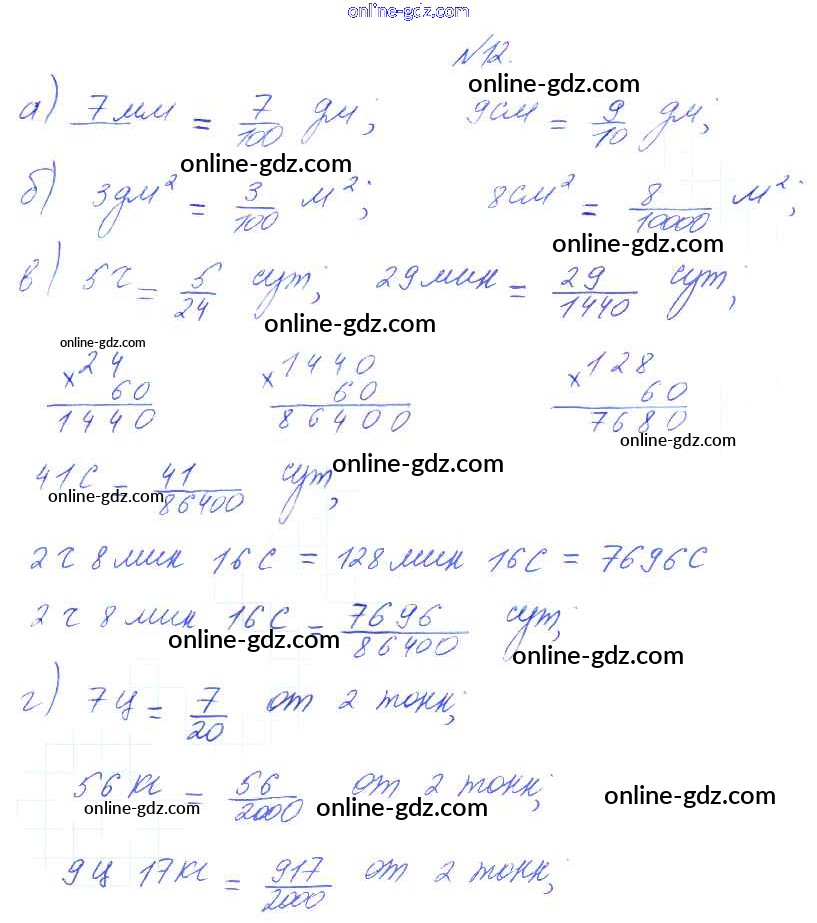 online-gdz.com
N12.
online-gdz.com
а) 7мм = 7/100 дм; 9см = 9/10 дм;
online-gdz.com
б) 3дм² = 3/100 м²; 8см² = 8/10000 м²;
online-gdz.com
в) 5ч = 5/24 сут; 29мин = 29/1440 сут;
online-gdz.com
online-gdz.com
24 1440 128
× 60 × 60 × 60
1440 86400 7680
online-gdz.com
online-gdz.com
41с = 41/86400 сут;
online-gdz.com
2ч 8мин 16с = 128мин 16с = 7696с
2ч 8мин 16с = 7696/86400 сут;
online-gdz.com
online-gdz.com
г) 7ц = 7/20 от 2 тонн;
56кг = 56/2000 от 2 тонн;
online-gdz.com
online-gdz.com online-gdz.com
9ц 17кг = 917/2000 от 2 тонн;